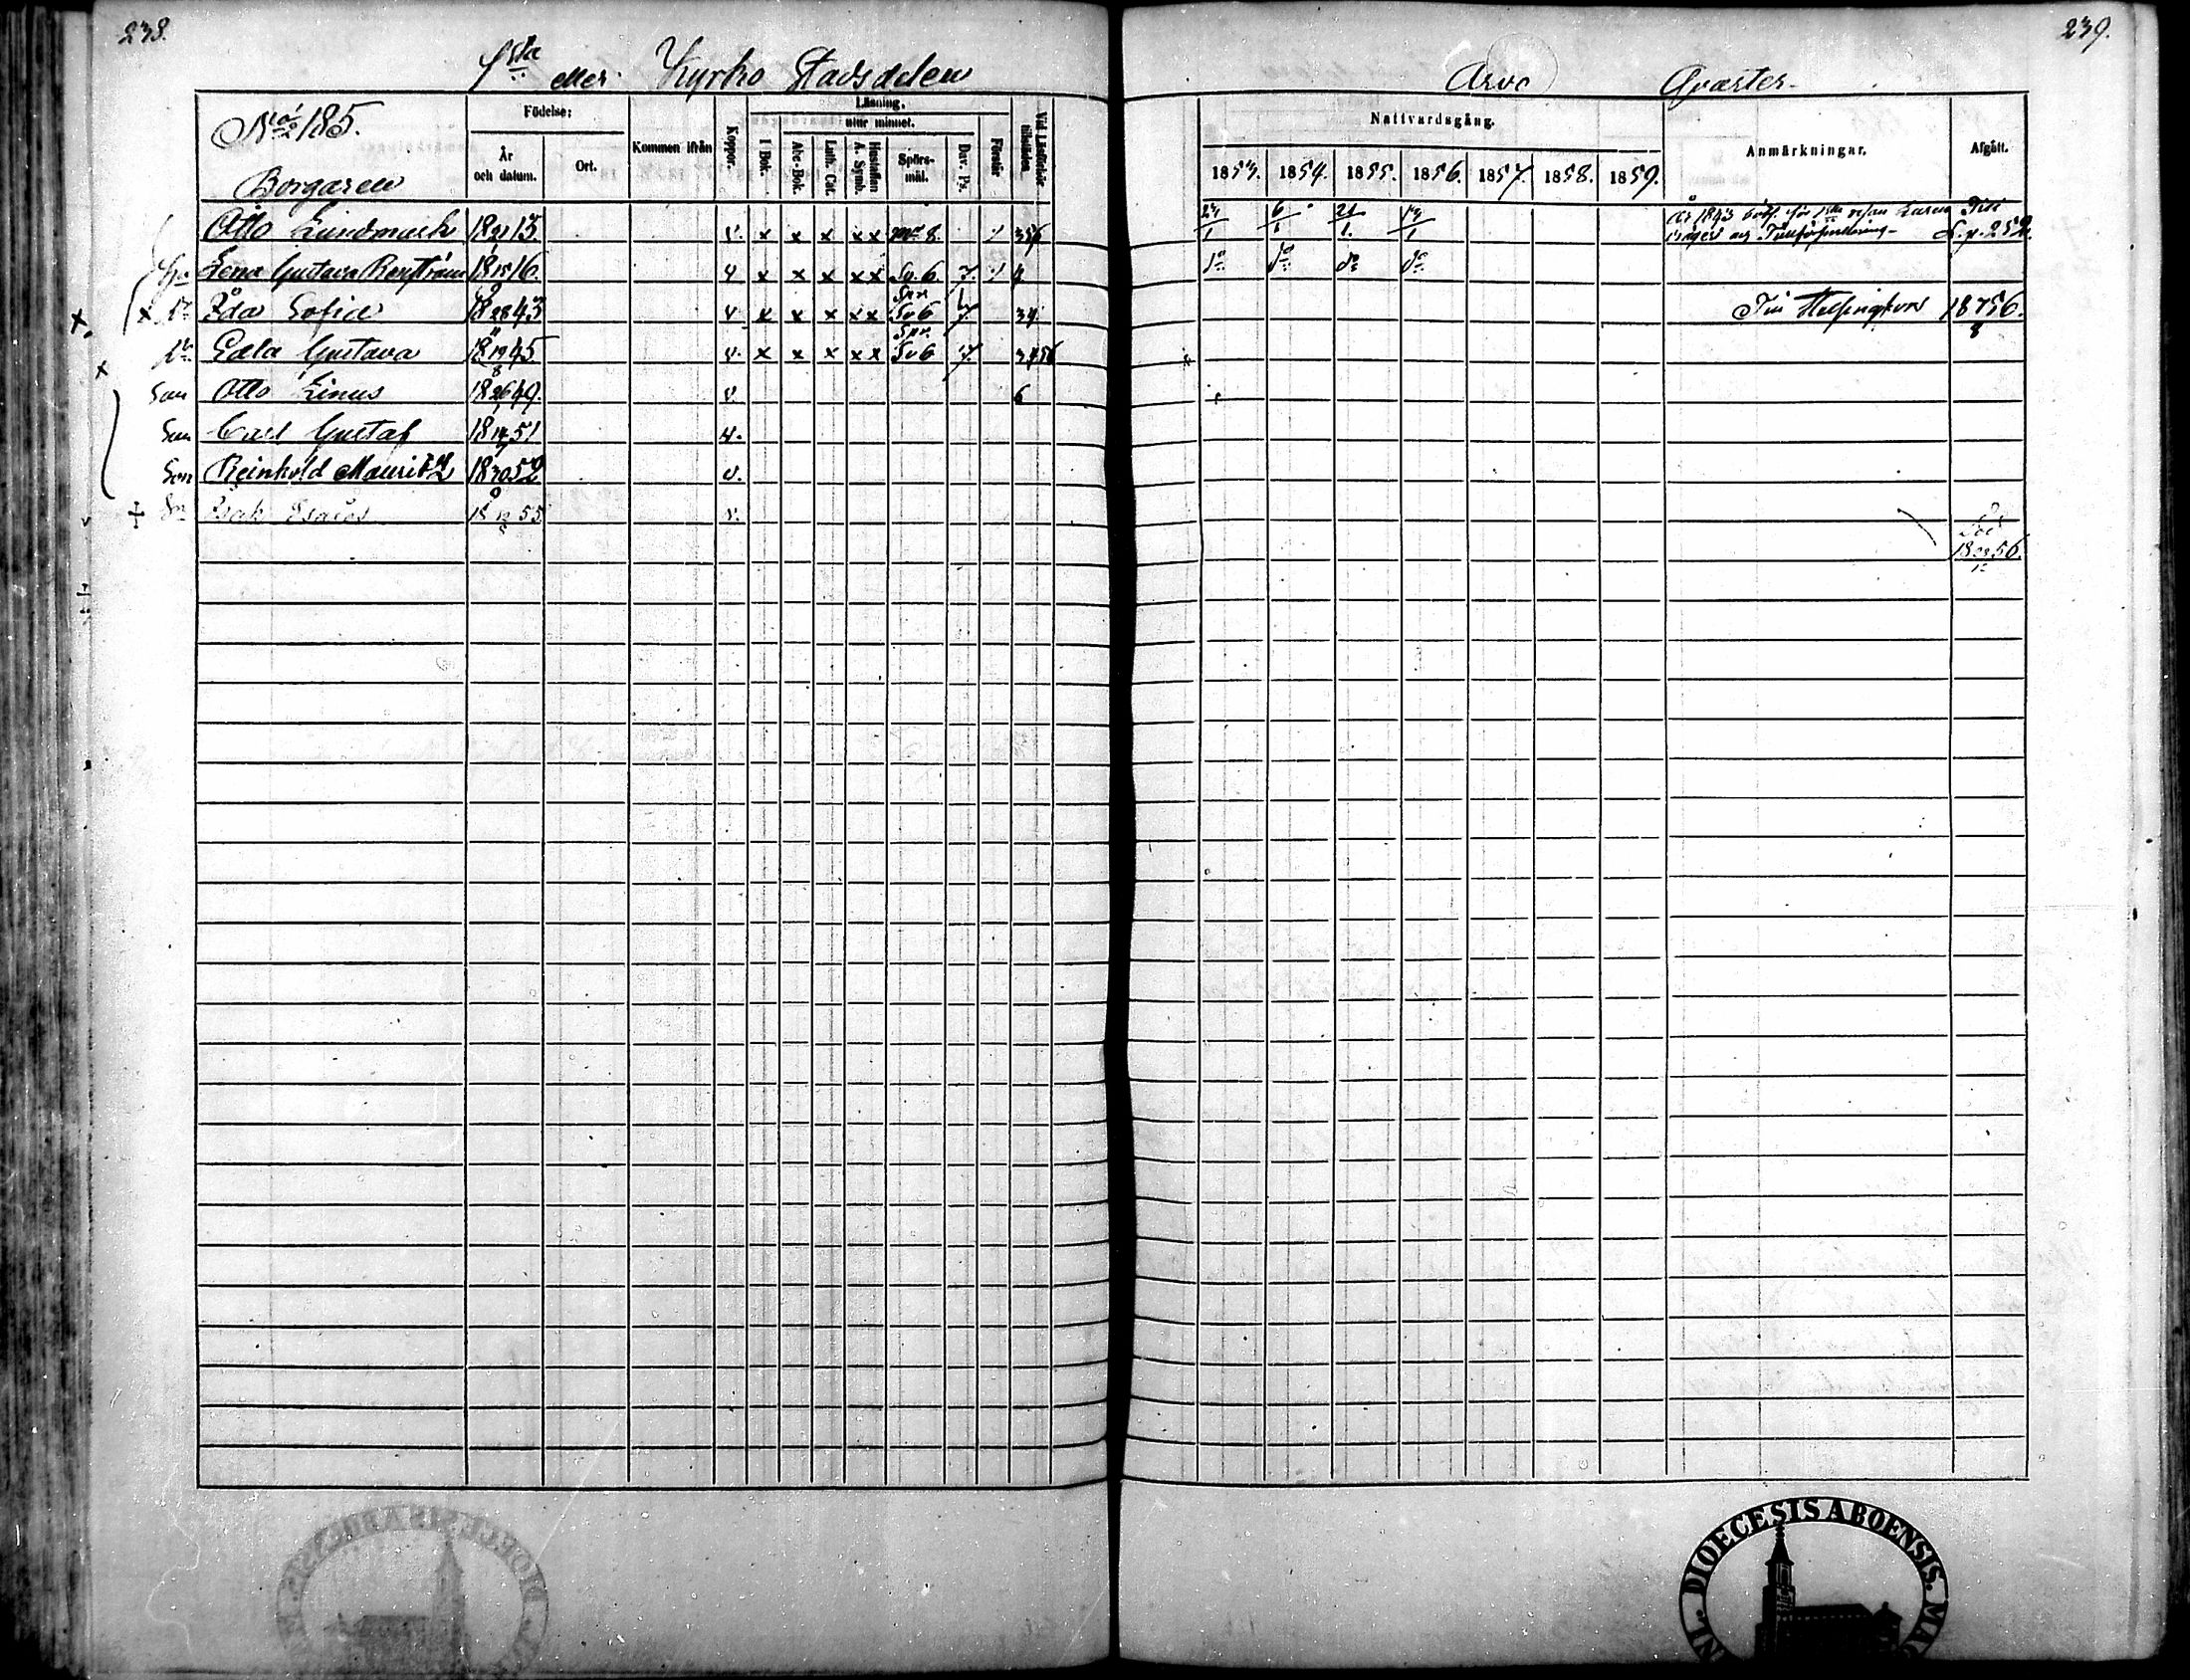 238.
1sta eller Kyrko Stadsdelen
No 185.
Borgaren
Födelse:
År och datum.
Ort.
Kommen ifrån
Koppor.
Läsning.
utur minnet.
I Bok.
Abc-Bok.
Luth. Cat.
Hustaflan A. Symb.
Spörsmål.
Dav. Ps.
Förstår
Vid Läsförhör tillstädes.
Otto Lindmark 18 21/1 13. v. x x x x x 8. 356
Lena Gustava 18 15 16. v x x x x x Sv. 6. 7. 4
x Ida Sofia 18 28 43 v x x x x x Sv 6 7. 34
Edla Gustava 18 19/8 45 v. x x x x x Sv 6 7. 3456
Son Otto Linus 18 26/1 49. v. 6
Son Carl Gustaf 18 14 51 v.
Son Reinhold Mauritz 18 30 52 v.
+ Sn Isak Esaias 18 55 v.
239.
Arvo Qvarter.
Nattvardsgång.
1853. 1854. 1855. 1856. 1857. 1858. 1859.
Anmärkningar.
Afgått.
6/1 21/1
År 1843 böt. för 1sta resan
Till S. p. 252.
do do do do
Till Helsingfors 18 7/8 56.
Död 18 56.
DIOECESIS ABOENSIS.